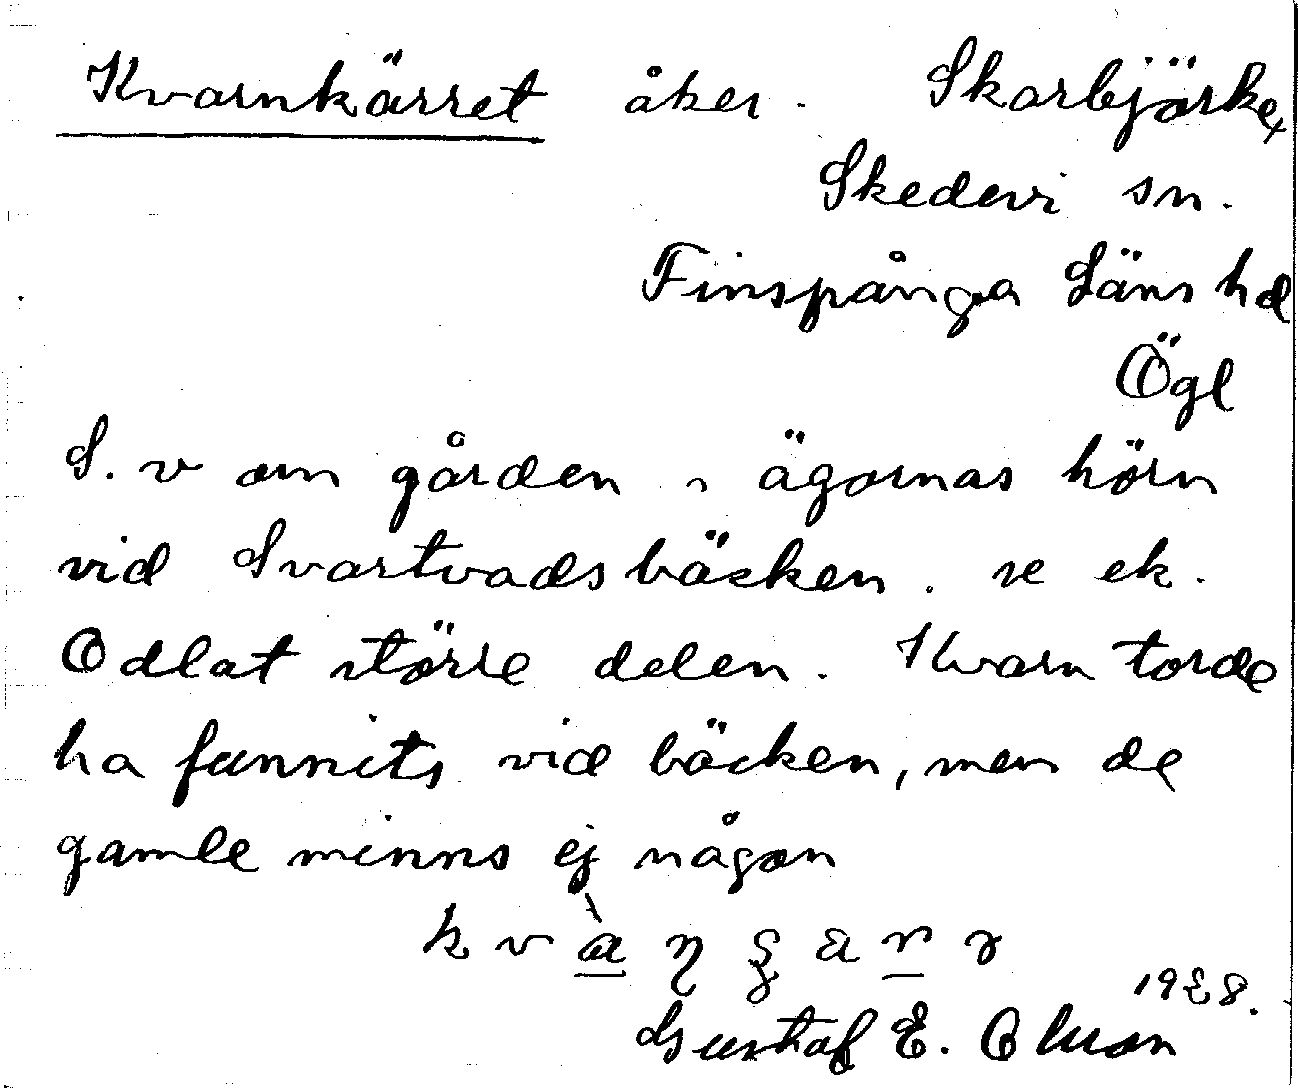 Kvarnkärret åker. Skarbjörke,
Skedevi sn.
Finspånga Läns hd
Ögl
S. v om gården i ägornas hörn
vid Svartvadsbäcken. se ek.
Odlat större delen. Kvarn torde
ha funnits vid bäcken, men de
gamle minns ej någon
1928.
Gustaf E. Olsson